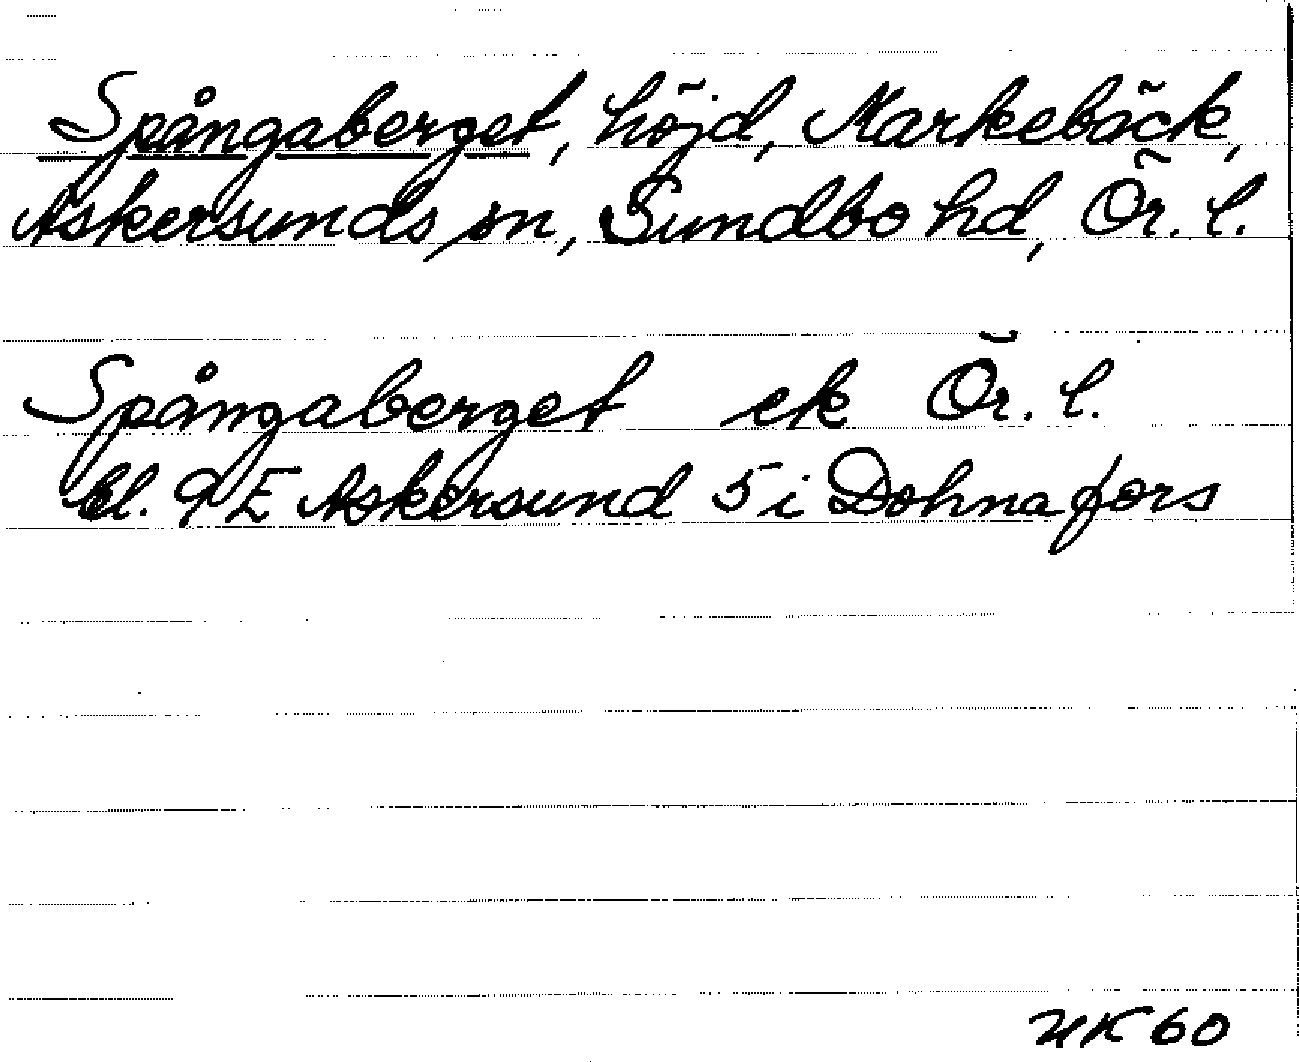 Spångaberget, höjd, Markebäck,
Askersunds sn, Sundbo hd, Ör. l.
Spångaberget ek Ör. l.
bl. 9E Askersund 5 i Dohnafors
HK 60